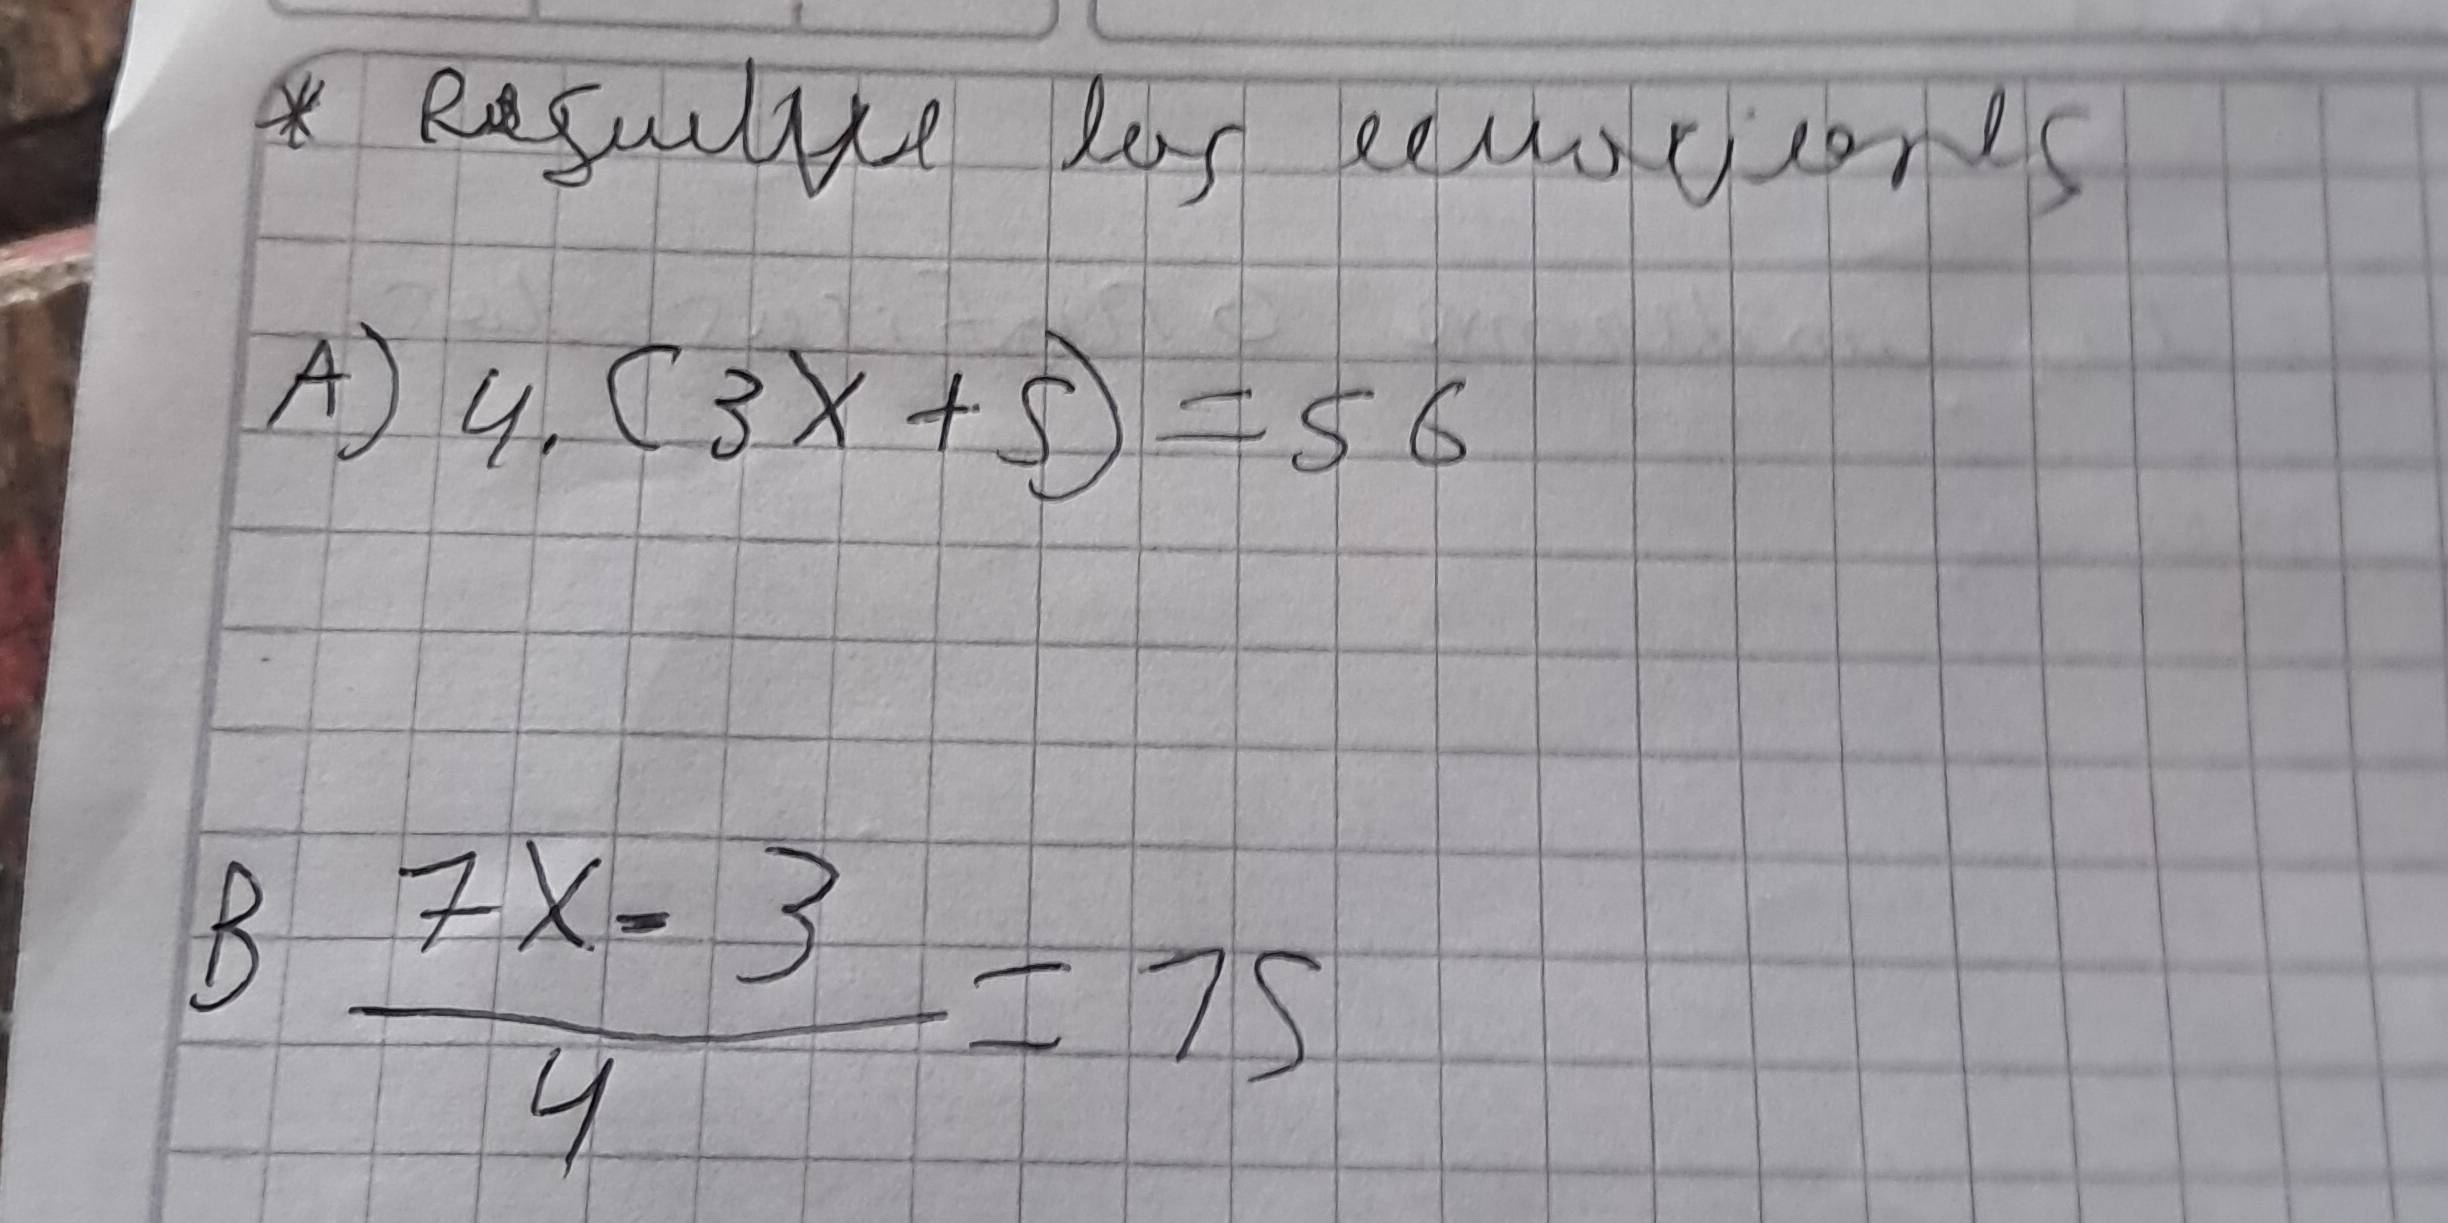 * Resuelve las ecuaciones
A) 4. (3X + 5) = 56
B 7X - 3
= 75
4